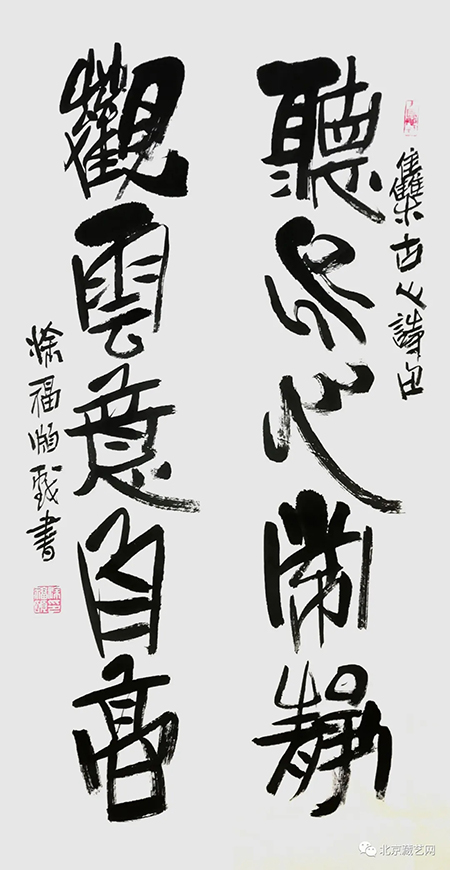 集古人詩句
聽泉心常靜
觀雲意自高
徐福 書
北京藏艺网